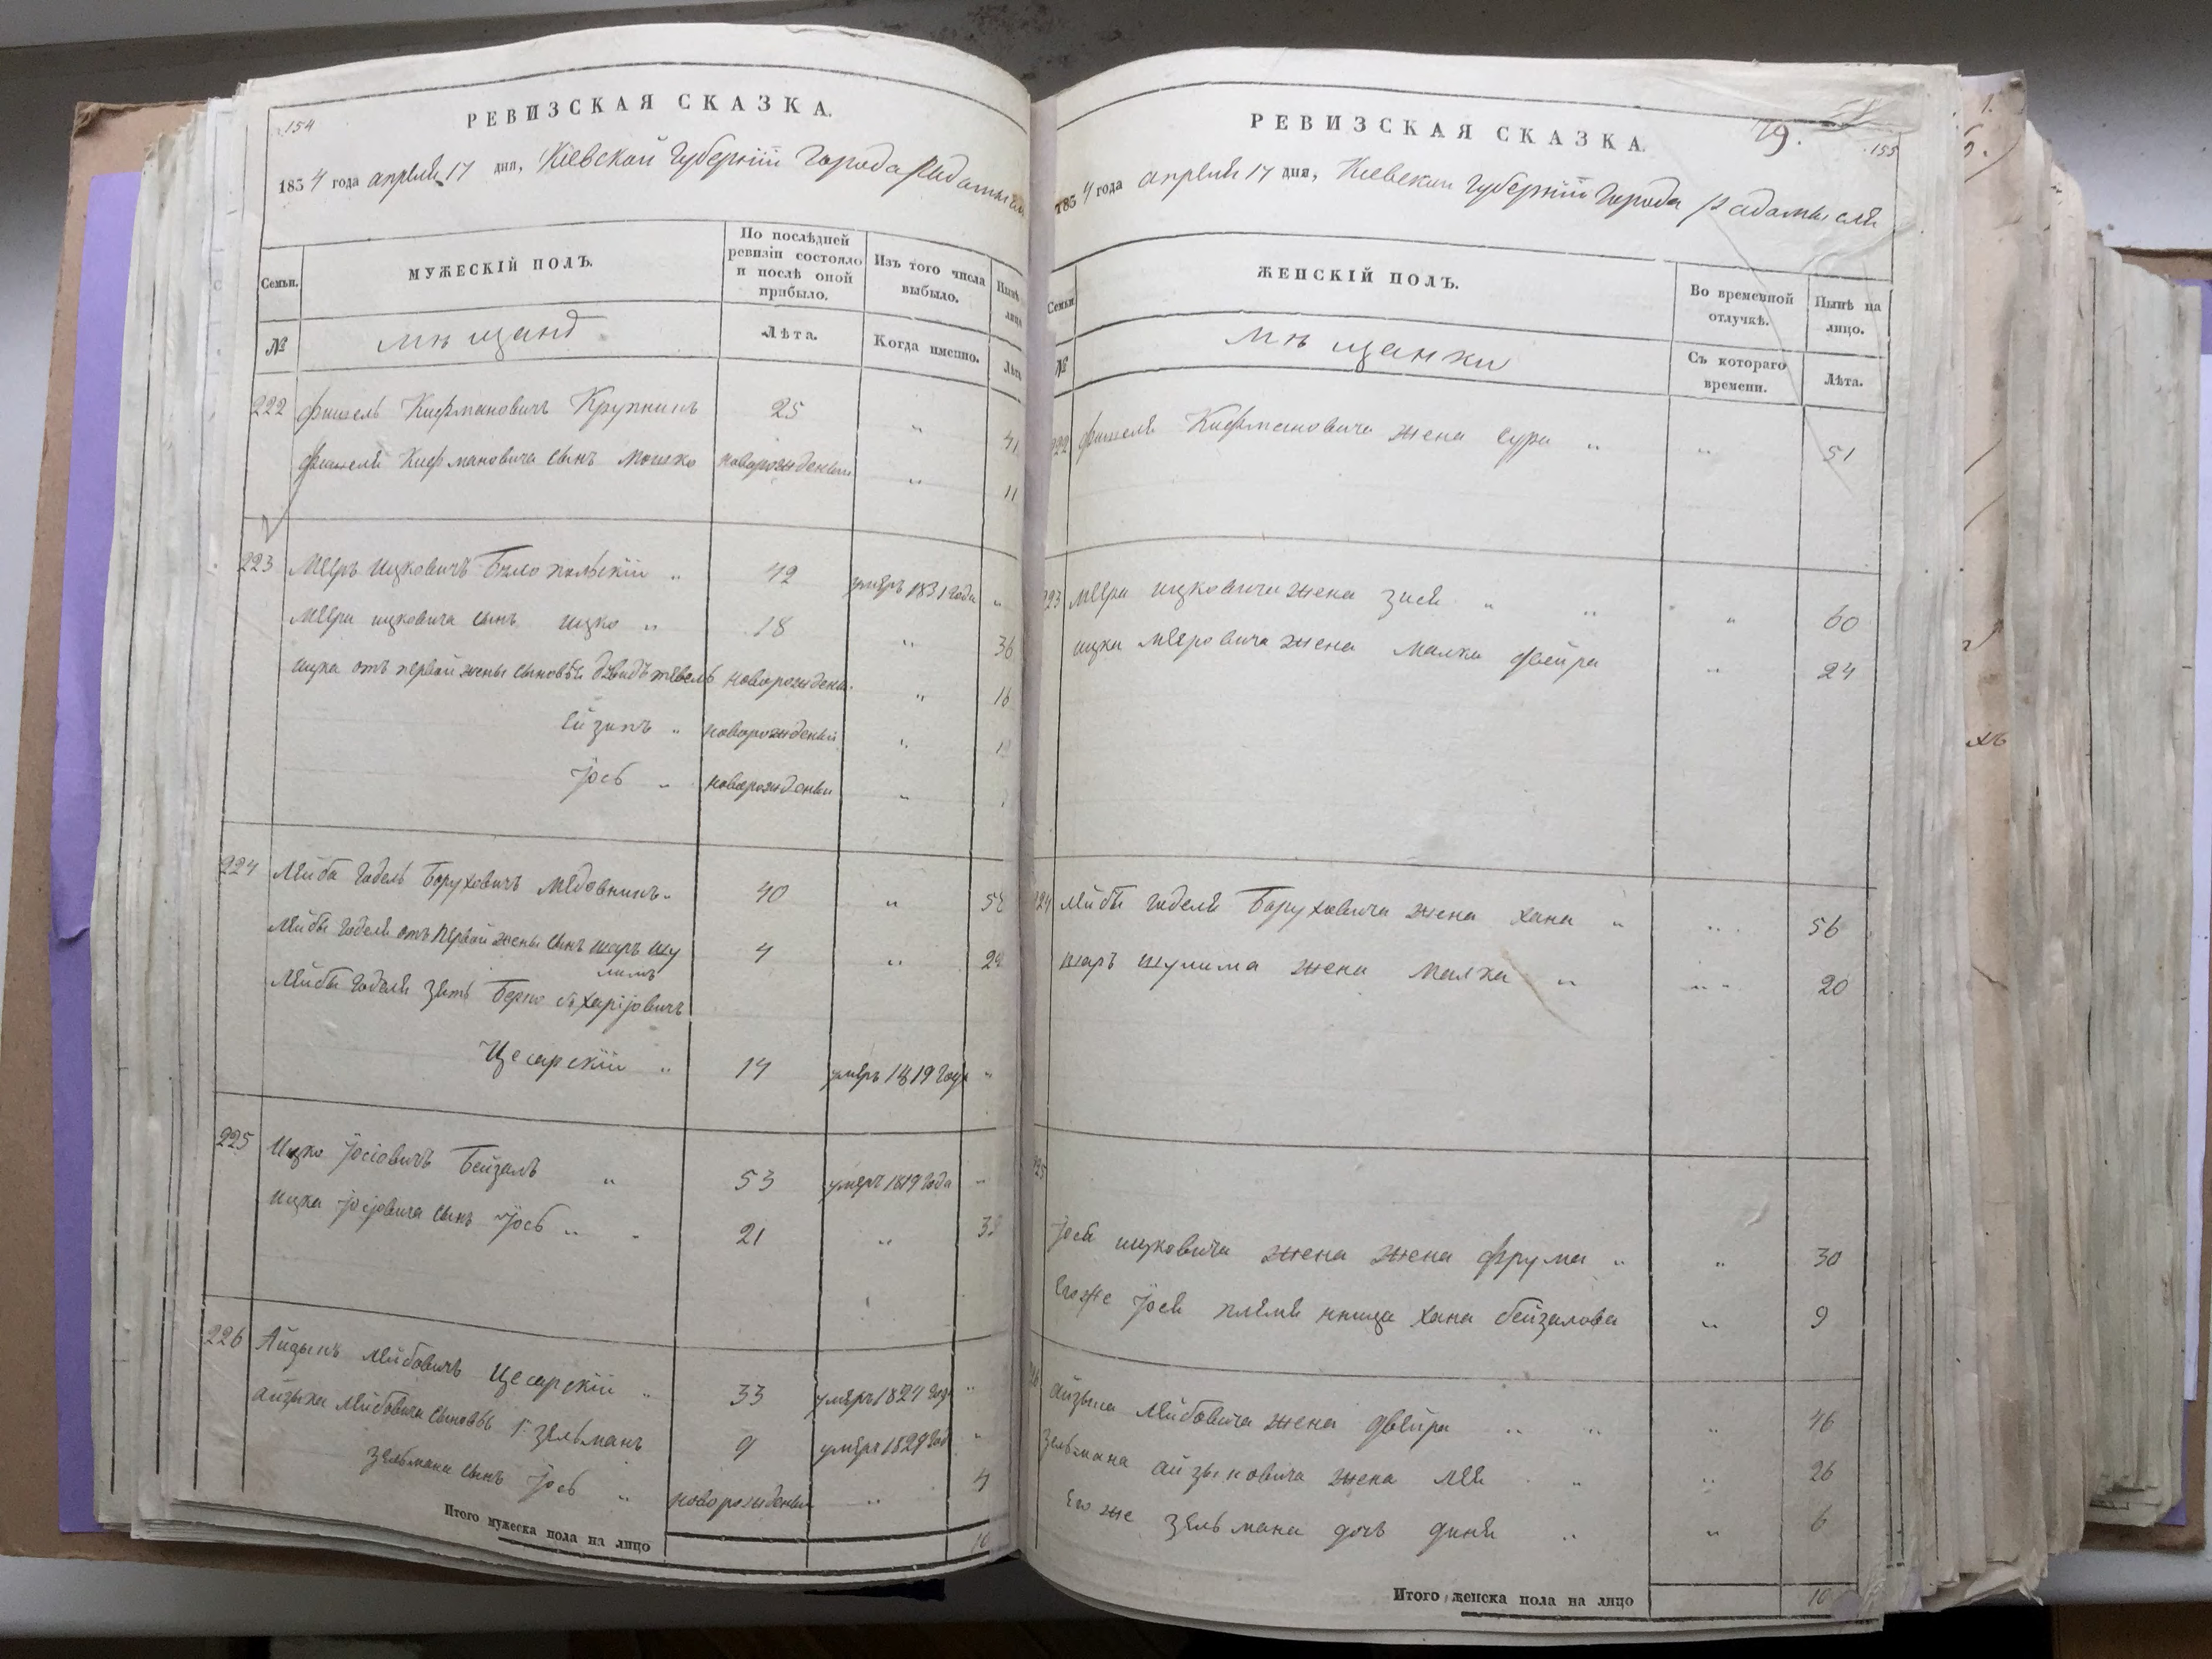 154
РЕВИЗСКАЯ СКАЗКА.
1834 года апреля 17 дня, Кіевской Губерніи Города Радомысля
Семьи.
МУЖЕСКІЙ ПОЛЪ.
По послѣдней ревизіи состояло и послѣ оной прибыло.
Изъ того числа выбыло.
Нынѣ лицо
№
мѣщанѣ
Лѣта.
Когда именно.
Лѣта
222 Фишель Кифмановичъ Крупникъ 25 " 41
Фишеля Кифмановича сынъ Мошко новорожденый " 11
223 Мееръ Ицковичъ Бѣлопольскій " 42 умеръ 1831 года "
Меера Ицковича сынъ Ицко " 18 " 36
Ицка отъ первой жены сыновья Дувидъ Тевель новорожден. " 16
Ейзикъ " новорожденый "
Іось " новорожденый "
224 Лейба Годель Боруховичъ Медовникъ 40 "
Лейбы Годеля отъ первой жены сынъ Шаръ Шу
лимъ 4 "
Лейбы Годеля зять Берко
Цесарскій " 14 умеръ 1819 года "
225 Ицко Іосіовичъ Бейзаль " 53 умеръ 1819 года "
Ицка Іосіовича сынъ Іось " 21 "
226 Айзыкъ Лейбовичъ Цесарскій " 33 умеръ 1824 года "
Айзыка Лейбовича сыновья 1. Зельманъ 9 умеръ 1829 года "
Зельмана сынъ Іось " новорожденый " 4
Итого мужеска пола на лицо 10
79.
155
РЕВИЗСКАЯ СКАЗКА.
1834 года апреля 17 дня, Кіевской Губерніи Города Радомысля
Семьи
ЖЕНСКІЙ ПОЛЪ.
Во временной отлучкѣ.
Нынѣ на лицо.
№
мѣщанки
Съ котораго времени.
Лѣта.
222 Фишеля Кифмановича жена Сура " " 51
223 Меера Ицковича жена Зися " " " 60
Ицка Меровича жена Малка Двейра " 24
224 Лейбы Годеля Боруховича жена Хана " " 56
Шаръ Шулима жена Малка " " 20
225
Іося Ицковича жена жена Фрума " " 30
Егоже Іося племяница Хана Бейзалова " 9
226 Айзыка Лейбовича жена Двейра " " " 46
Зельмана Айзыковича жена Лея " " 26
Его же Зельмана дочь Диня " " 6
Итого женска пола на лицо 10